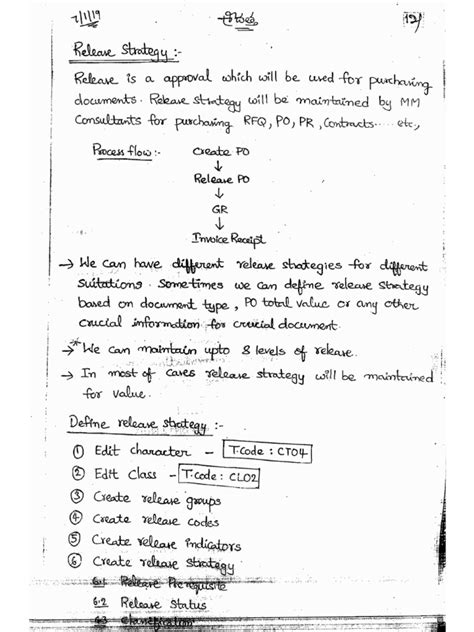 7/1/19
12
Release Strategy :-
Release is a approval which will be used for purchasing
documents. Release strategy will be maintained by MM
Consultants for purchasing RFQ, PO, PR, Contracts..... etc,
Process flow :- Create PO
↓
Release PO
↓
GR
↓
Invoice Receipt
→ We can have different release strategies for different
suitations. Sometimes we can define release strategy
based on document type, PO total value or any other
crucial information for crucial document.
→* We can maintain upto 8 levels of release.
→ In most of cases release strategy will be maintained
for value.
Define release strategy :-
① Edit character - T.Code : CT04
② Edit Class - T.Code : CL02
③ Create release groups
④ Create release codes
⑤ Create release indicators
⑥ Create release strategy
6.1 Release Prerequisite
6.2 Release Status
6.3 Classification